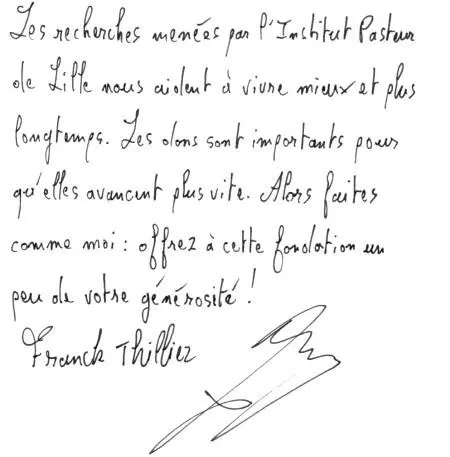 Les recherches menées par l'Institut Pasteur
de Lille nous aident à vivre mieux et plus
longtemps. Les dons sont importants pour
qu'elles avancent plus vite. Alors faites
comme moi : offrez à cette fondation un
peu de votre générosité !
Franck Thilliez